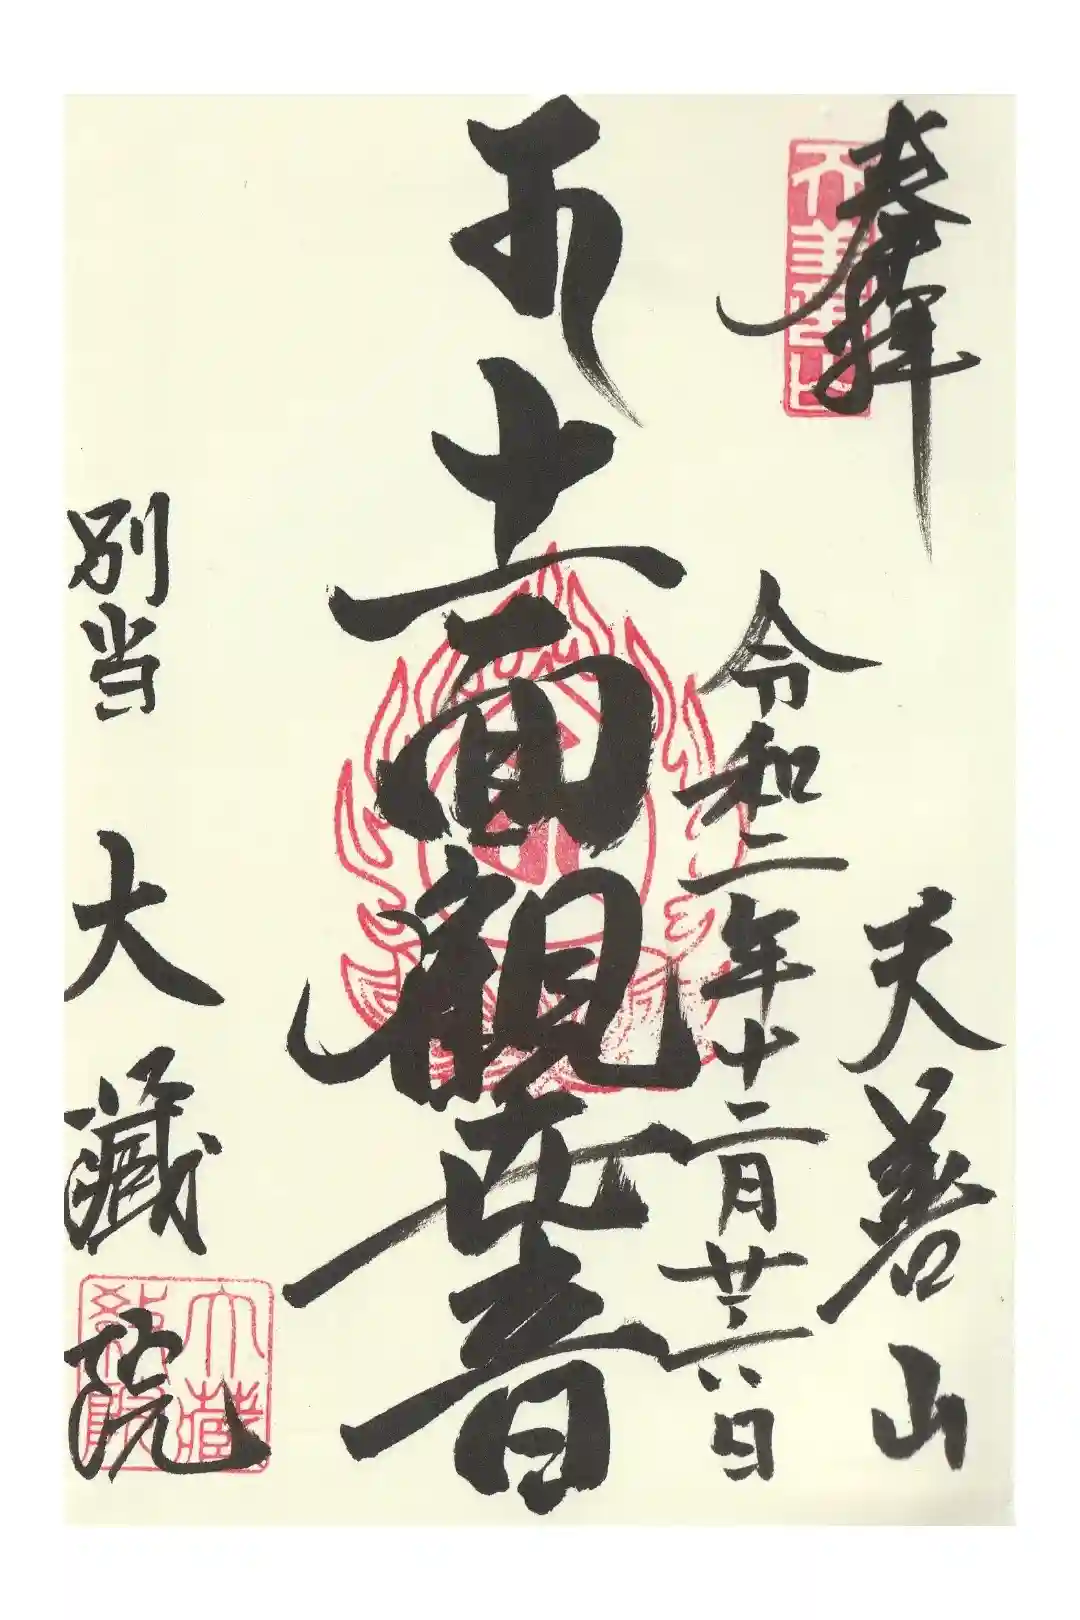 奉拝
天善山
令和二年十二月廿六日
十一面観世音
別当 大藏院